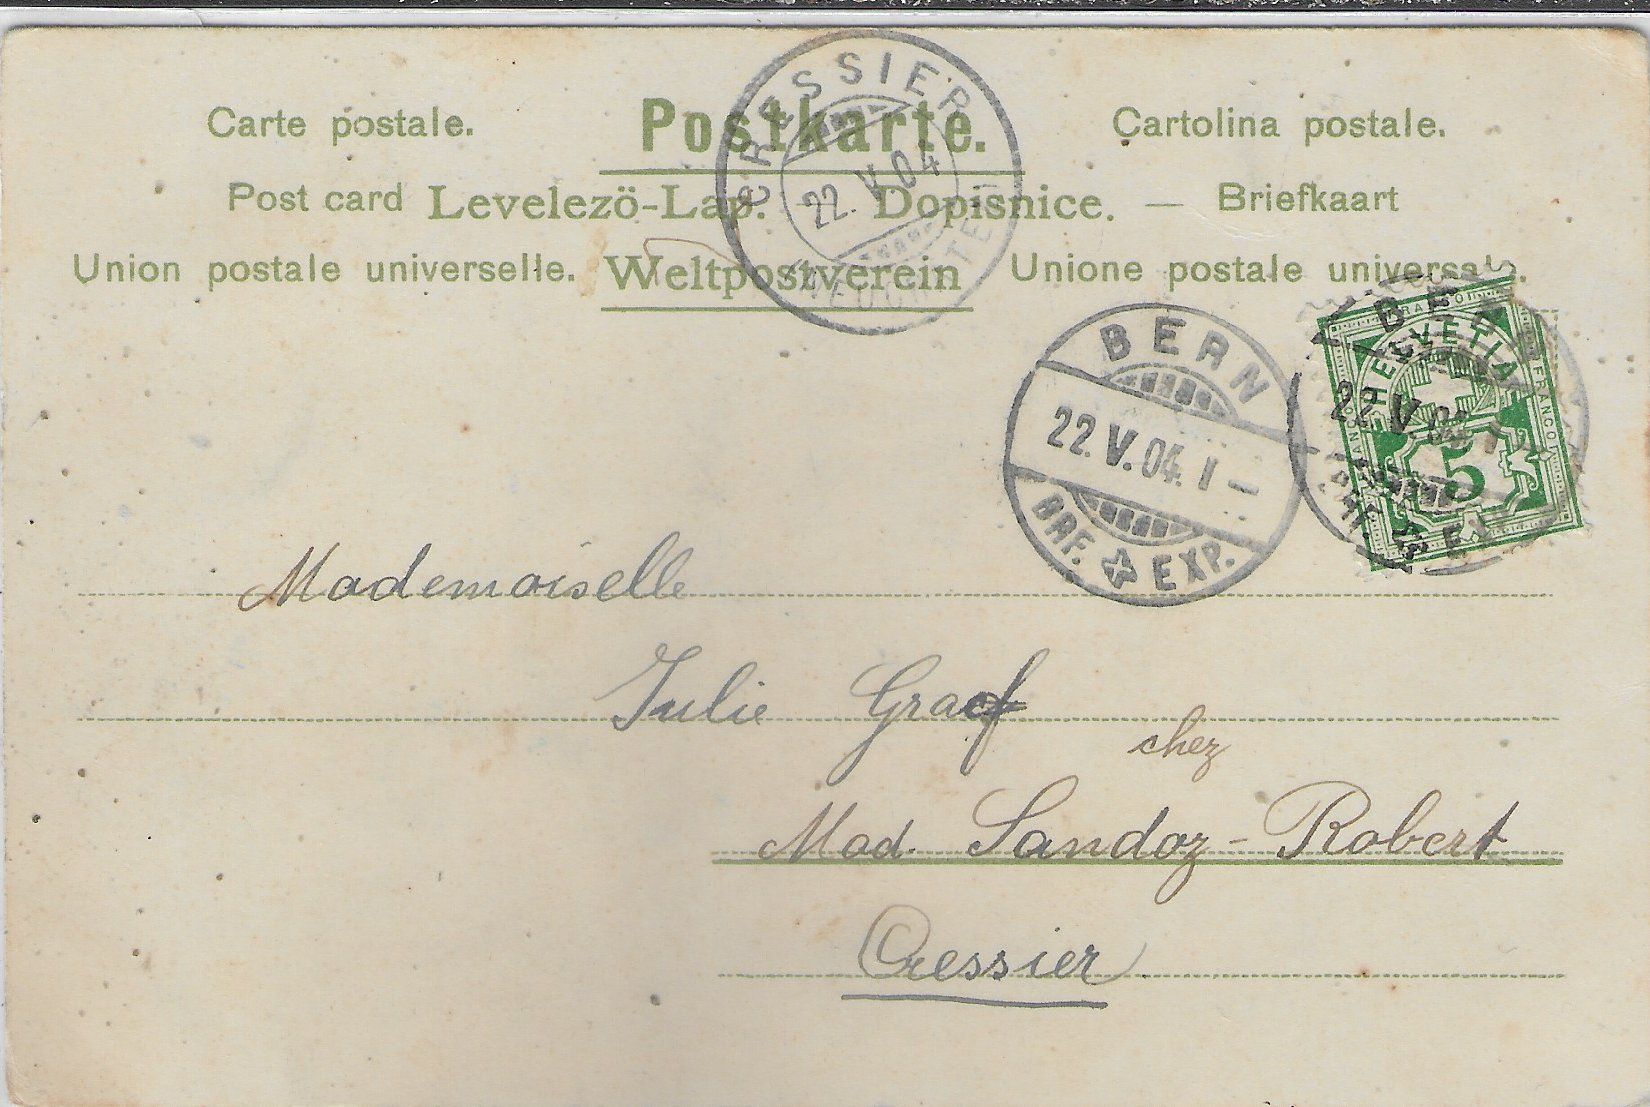 Carte postale. Postkarte. Cartolina postale.
Post card Levelező-Lap. Dopisnice. — Briefkaart
Union postale universelle. Weltpostverein Unione postale universale.
CRESSIER
22. V 04
BERN
22. V. 04. I –
BRF. EXP.
HELVETIA
FRANCO
5
22 V.
Mademoiselle
Julie Graf
chez
Mad. Sandoz - Robert
Cressier